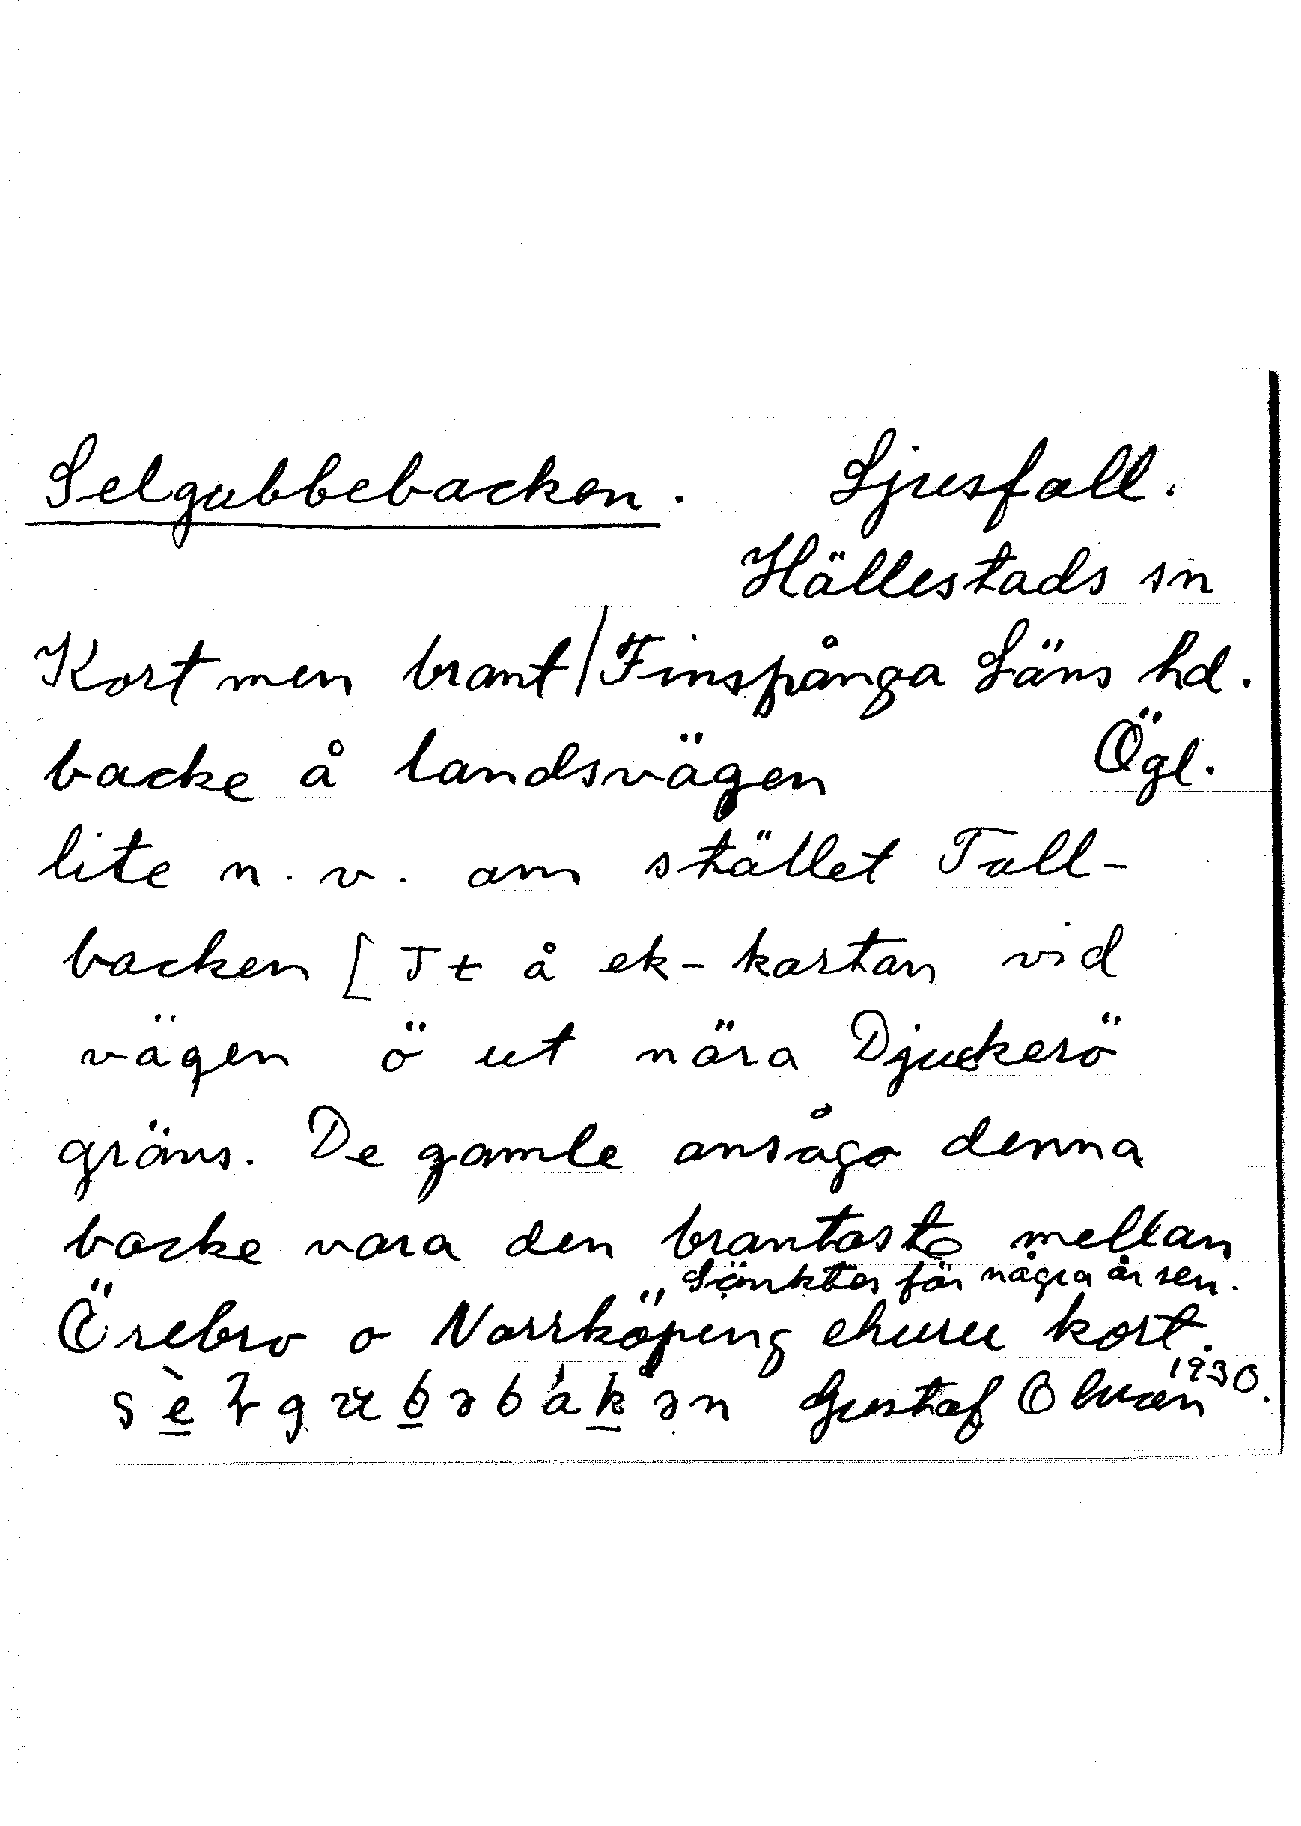 Selgubbebacken. Ljusfall.
Hällestads sn
Kort men brant / Finspånga Läns hd.
backe å landsvägen Ögl.
lite n.v. om stället Tall-
backen [ Tt å ek-kartan vid
vägen ö ut nära Djuckerö
gräns. De gamle ansågo denna
backe vara den brantaste mellan
Sänktes för några år sen.
Örebro o Norrköping ehuru kort.
1930.
Gustaf